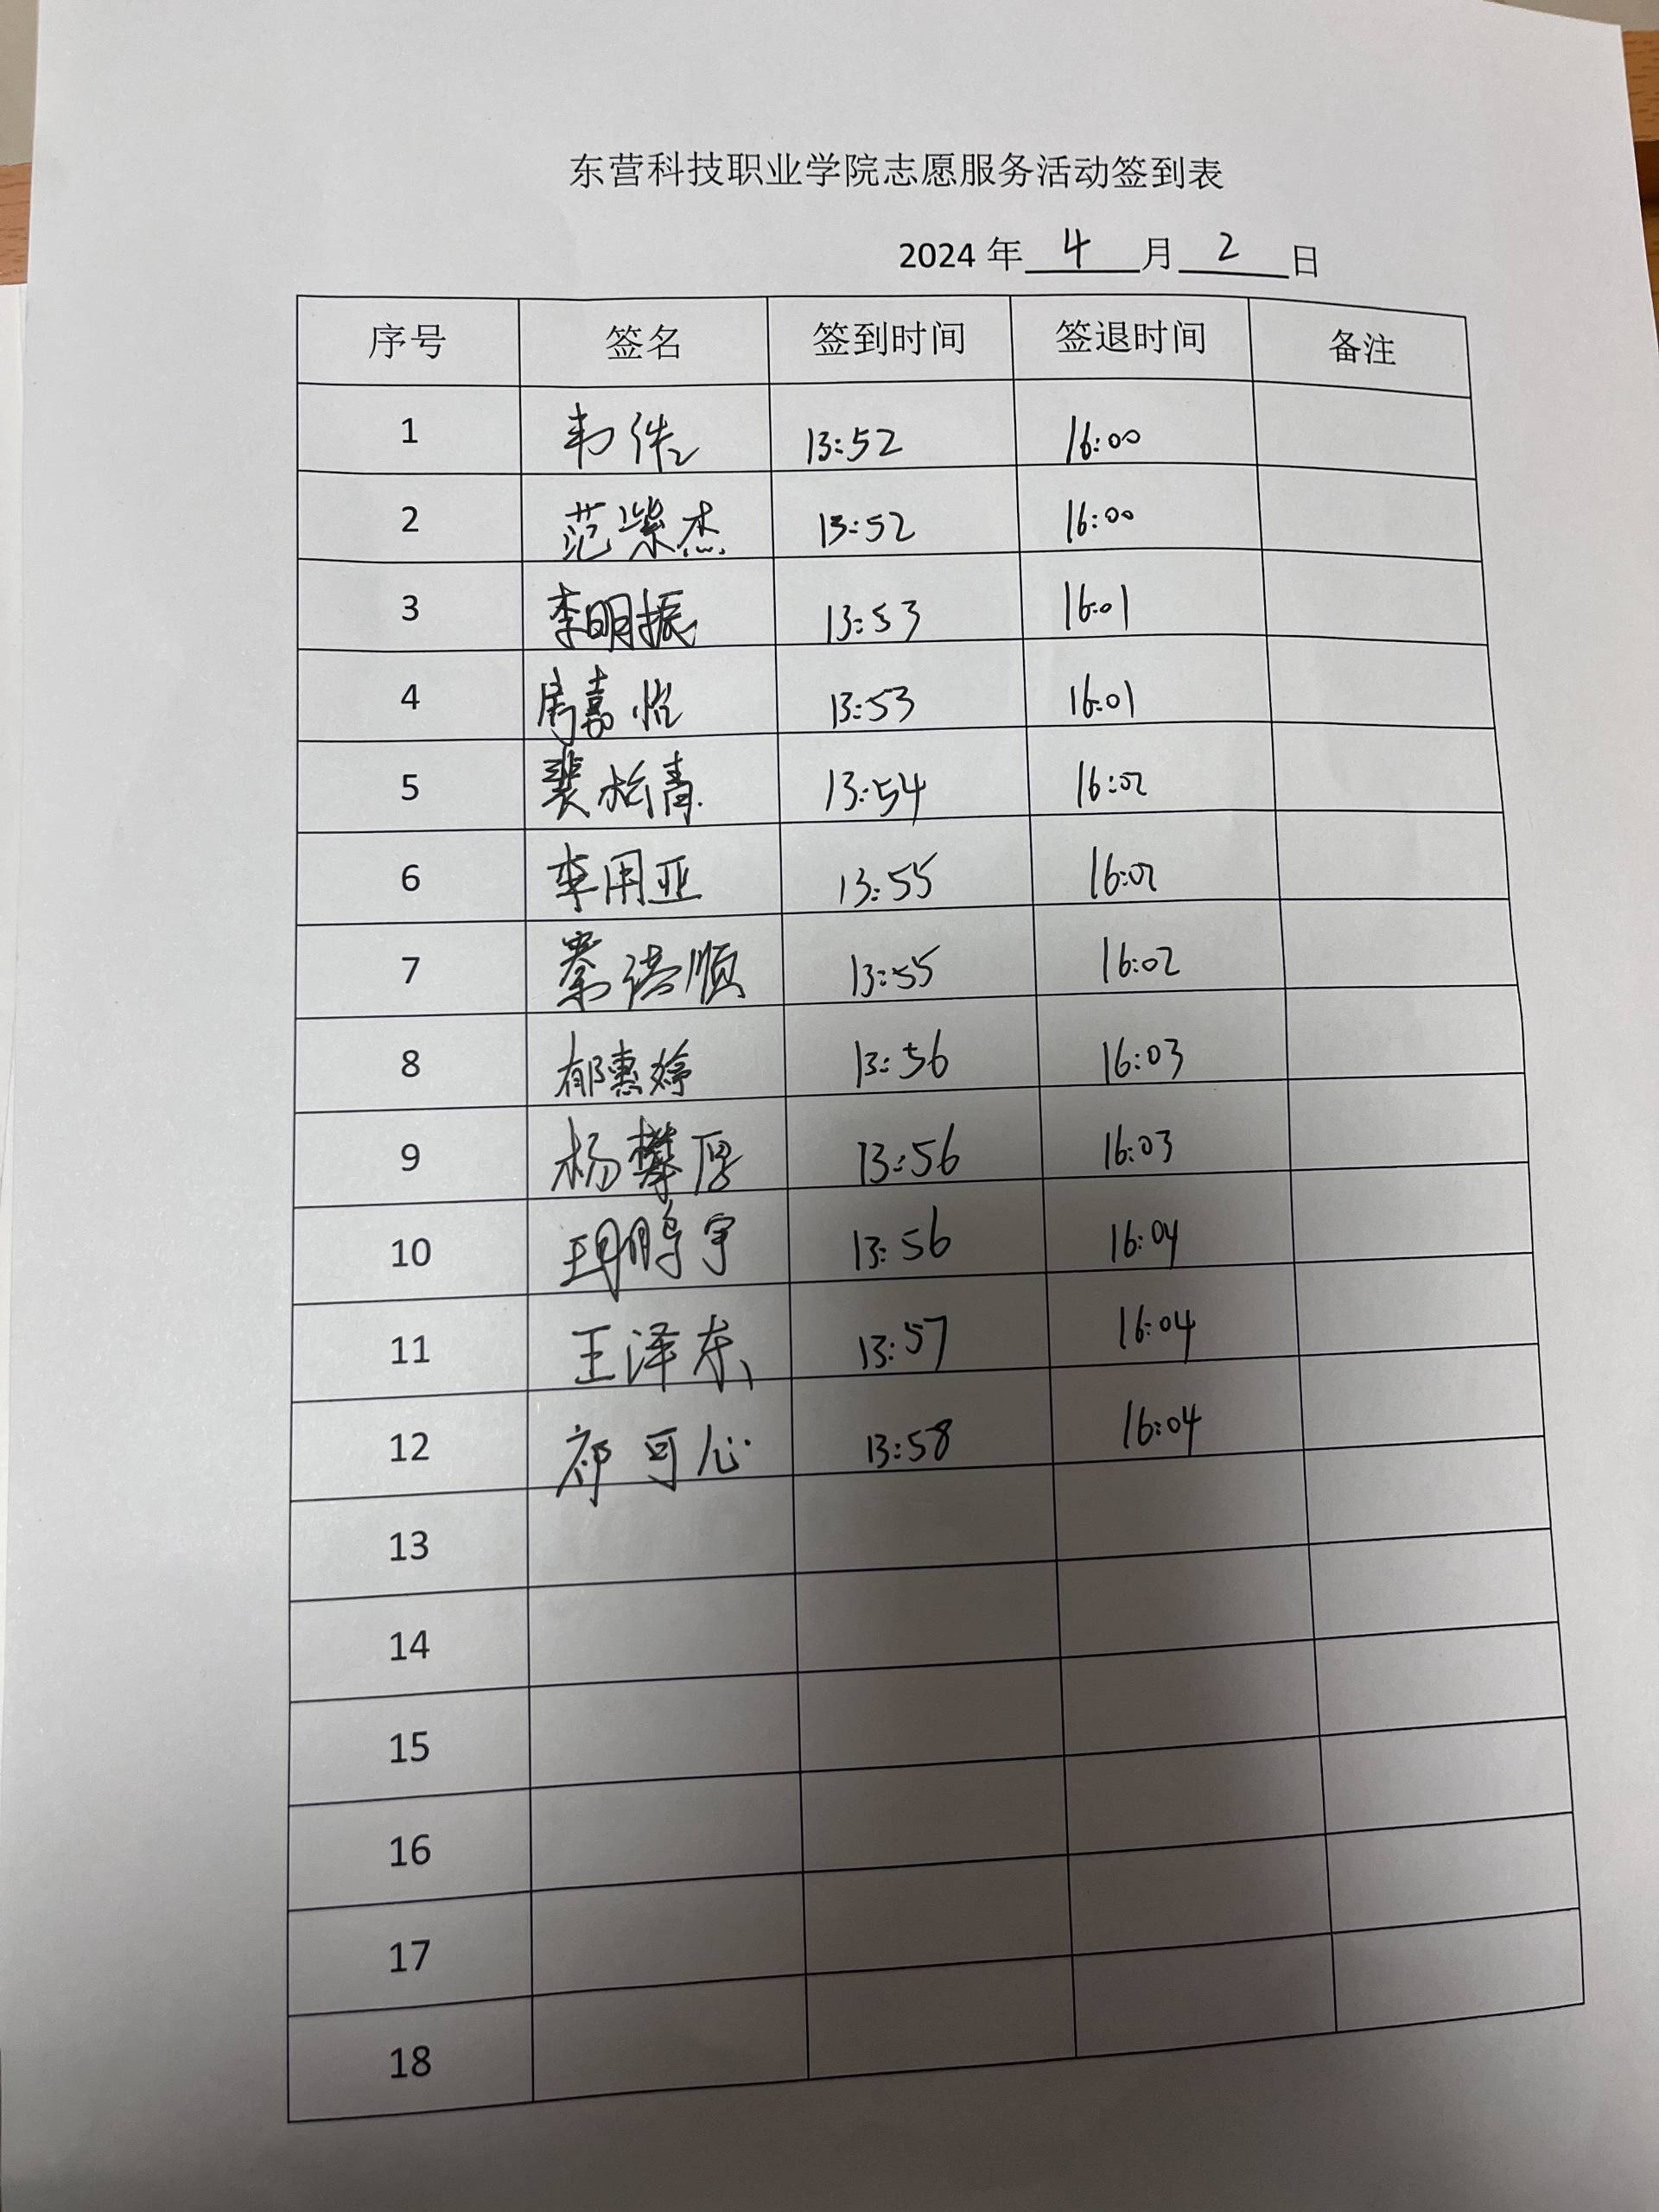 东营科技职业学院志愿服务活动签到表
2024 年 4 月 2 日
序号 签名 签到时间 签退时间 备注
1 韦 13:52 16:00
2 范紫杰 13:52 16:00
3 李明振 13:53 16:01
4 周嘉怡 13:53 16:01
5 裴松青 13:54 16:02
6 李用亚 13:55 16:02
7 顺 13:55 16:02
8 郁惠婷 13:56 16:03
9 杨攀厚 13:56 16:03
10 鹏宇 13:56 16:04
11 王泽东 13:57 16:04
12 祁可心 13:58 16:04
13
14
15
16
17
18